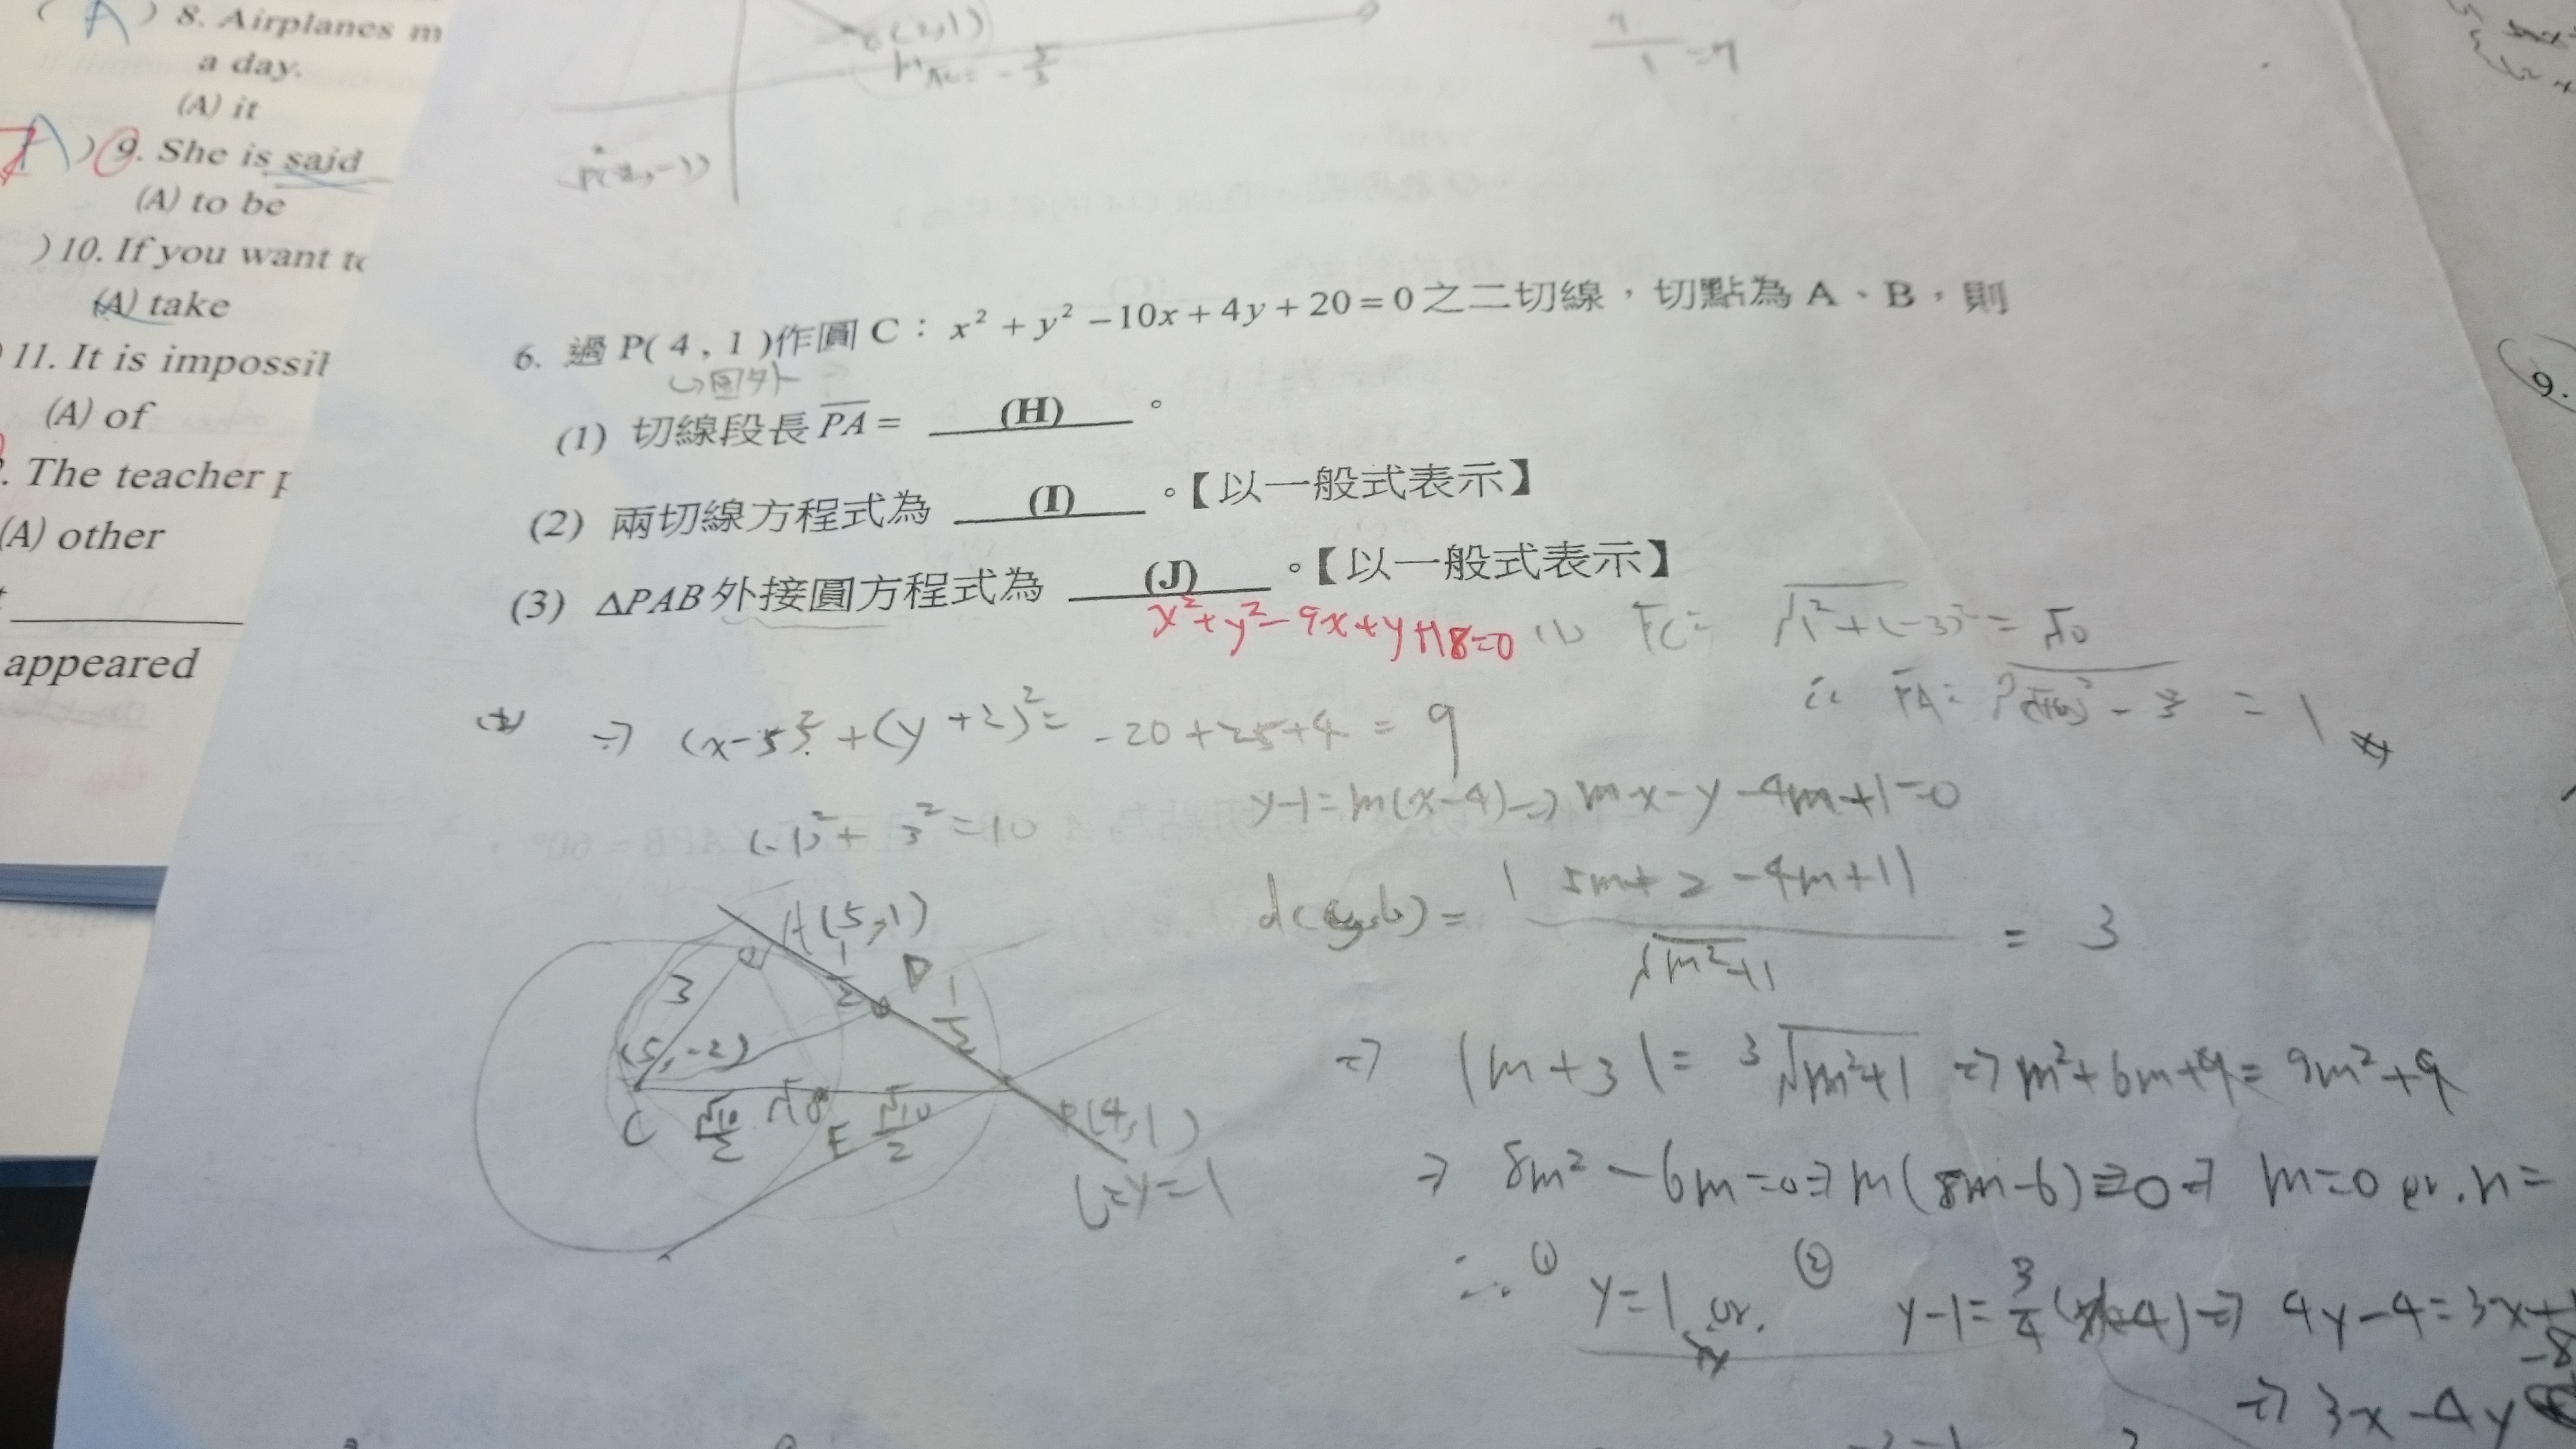 A ) 8. Airplanes m
a day.
(A) it
A ) 9. She is said
(A) to be
) 10. If you want to
(A) take
11. It is impossib
(A) of
. The teacher p
(A) other
appeared
(2,1)
=7
9.
6. 過 P( 4 , 1 )作圓 C : x² + y² −10x + 4y + 20 = 0 之二切線,切點為 A、B,則
→圓外
(1) 切線段長 PA = (H) 。
(2) 兩切線方程式為 (I) 。【以一般式表示】
(3) ΔPAB 外接圓方程式為 (J) 。【以一般式表示】
x²+y²−9x+y+18=0
(1) PC = √1²+(−3)² = √10
∴ PA = √(√10)² − 3² = 1
⇒ (x−5)² + (y+2)² = −20+25+4 = 9
(−1)² + 3² = 10
y−1=m(x−4) ⇒ mx−y−4m+1=0
|5m+2−4m+1|
= 3
√m²+1
⇒ |m+3| = 3√m²+1 ⇒ m²+6m+9 = 9m²+9
⇒ 8m² − 6m=0 ⇒ m(8m−6)=0 ⇒ m=0 or. m=
∴ ① y=1 or. ② y−1=3/4(x−4) ⇒ 4y−4=3x
⇒ 3x−4y
A(5,1)
3
1/2
D
1/2
(5,−2)
C
√10/2
√10
E
√10/2
P(4,1)
L=y=1